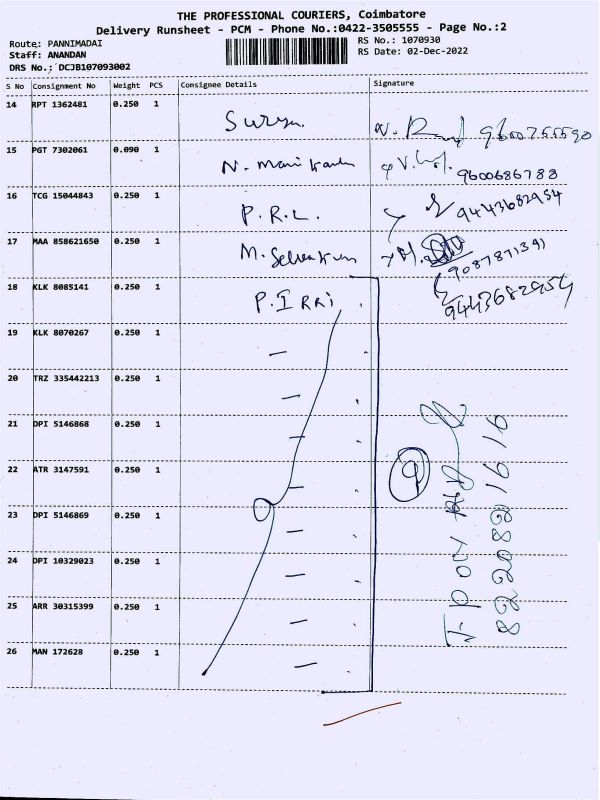 THE PROFESSIONAL COURIERS, Coimbatore
Delivery Runsheet - PCM - Phone No.:0422-3505555 - Page No.:2
Route: PANNIMADAI
Staff: ANANDAN
DRS No.: DCJB107093002
RS No.: 1070930
RS Date: 02-Dec-2022
S No Consignment No Weight PCS Consignee Details Signature
14 RPT 1362481 0.250 1 Surya
15 PGT 7302061 0.090 1 N. Manikandan 9600686788
16 TCG 15044843 0.250 1 P.R.L. 9443682954
17 MAA 858621650 0.250 1 M. Selvakum
18 KLK 8085141 0.250 1 P. IRRi 9443682954
19 KLK 8070267 0.250 1 —
20 TRZ 335442213 0.250 1 —
21 DPI 5146868 0.250 1 —
22 ATR 3147591 0.250 1 —
23 DPI 5146869 0.250 1 —
24 DPI 10329023 0.250 1 —
25 ARR 30315399 0.250 1 —
26 MAN 172628 0.250 1 —
9
8220821616